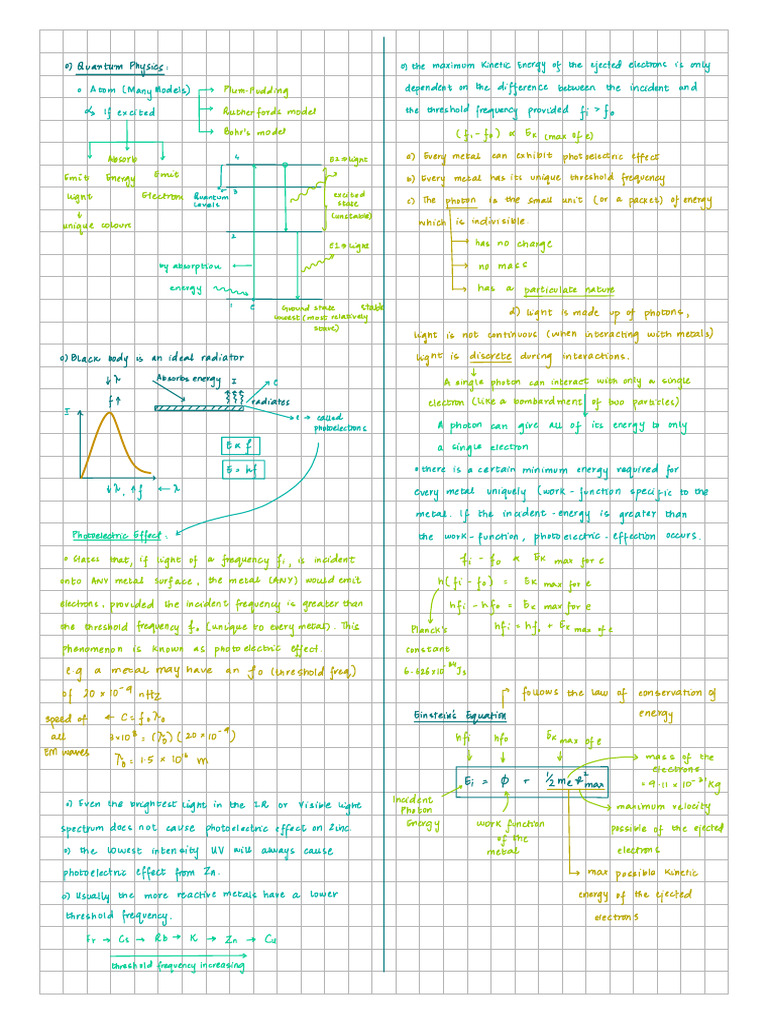 o) Quantum Physics:
o Atom (Many Models)
Plum-Pudding
Rutherford's model
Bohr's model
If excited
Absorb
Emit Energy Emit
light Electron
unique colour
4
3
2
1
Quantum
Levels
E2 → light
excited
state
(unstable)
E1 → light
by absorption
energy
e
Ground state stable
lowest (most relatively
state)
o) Black body is an ideal radiator
↓ λ
f ↑
I
Absorbs energy
I
e
radiates
e → called
photoelectrons
E ∝ f
E = hf
↓ λ, ↑ f ← λ
Photoelectric Effect:
o States that, if light of a frequency fi, is incident
onto ANY metal surface, the metal (ANY) would emit
electrons, provided the incident frequency is greater than
the threshold frequency fo (unique to every metal). This
phenomenon is known as photoelectric effect.
e.g a metal may have an fo (threshold freq)
of 20 × 10⁻⁹ nHz
speed of ← C = fo λo
all 3×10⁸ = (λo)(20×10⁻⁹)
EM waves
λo = 1.5 × 10¹⁶ m
o) Even the brightest light in the IR or visible light
spectrum does not cause photoelectric effect on Zinc.
o) the lowest intensity UV will always cause
photoelectric effect from Zn.
o) Usually the more reactive metals have a lower
threshold frequency.
Fr → Cs → Rb → K → Zn → Cu
threshold frequency increasing
o) the maximum Kinetic Energy of the ejected electrons is only
dependent on the difference between the incident and
the threshold frequency provided fi > fo
(fi - fo) ∝ Ek (max of e)
a) Every metal can exhibit photoelectric effect
b) Every metal has its unique threshold frequency
c) The photon is the small unit (or a packet) of energy
which is indivisible.
has no charge
no mass
has a particulate nature
d) light is made up of photons,
light is not continuous (when interacting with metals)
light is discrete during interactions.
A single photon can interact with only a single
electron (like a bombardment of two particles)
A photon can give all of its energy to only
a single electron
o there is a certain minimum energy required for
every metal uniquely (work-function specific to the
metal. If the incident-energy is greater than
the work-function, photoelectric-effection occurs.
fi - fo ∝ Ek max for e
h(fi - fo) = Ek max for e
hfi - hfo = Ek max for e
Planck's hfi = hfo + Ek max of e
constant
6.626×10⁻³⁴ Js
follows the law of conservation of
energy
Einstein's Equation
hfi hfo Ek max of e
Ei = φ + ½ me v² max
mass of the
electrons
= 9.11 × 10⁻³¹ Kg
Incident
Photon
Energy
work function
of the
metal
maximum velocity
possible of the ejected
electrons
max possible Kinetic
energy of the ejected
electrons